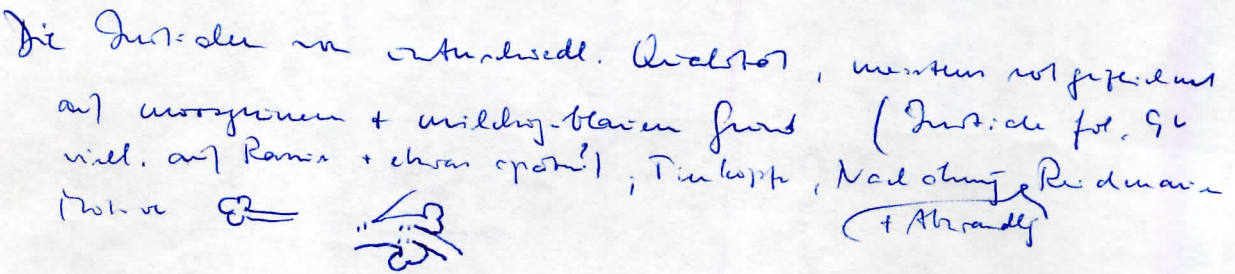 Die Initialen von unterschiedl. Qualität, meistens rot gezeichnet
auf moosgrünem + milchig-blauem Grund (Initiale fol. 9v
viell. auf Rasur + etwas später!), Tierköpfe, Nachahmung
+ Abwandlg
Motive